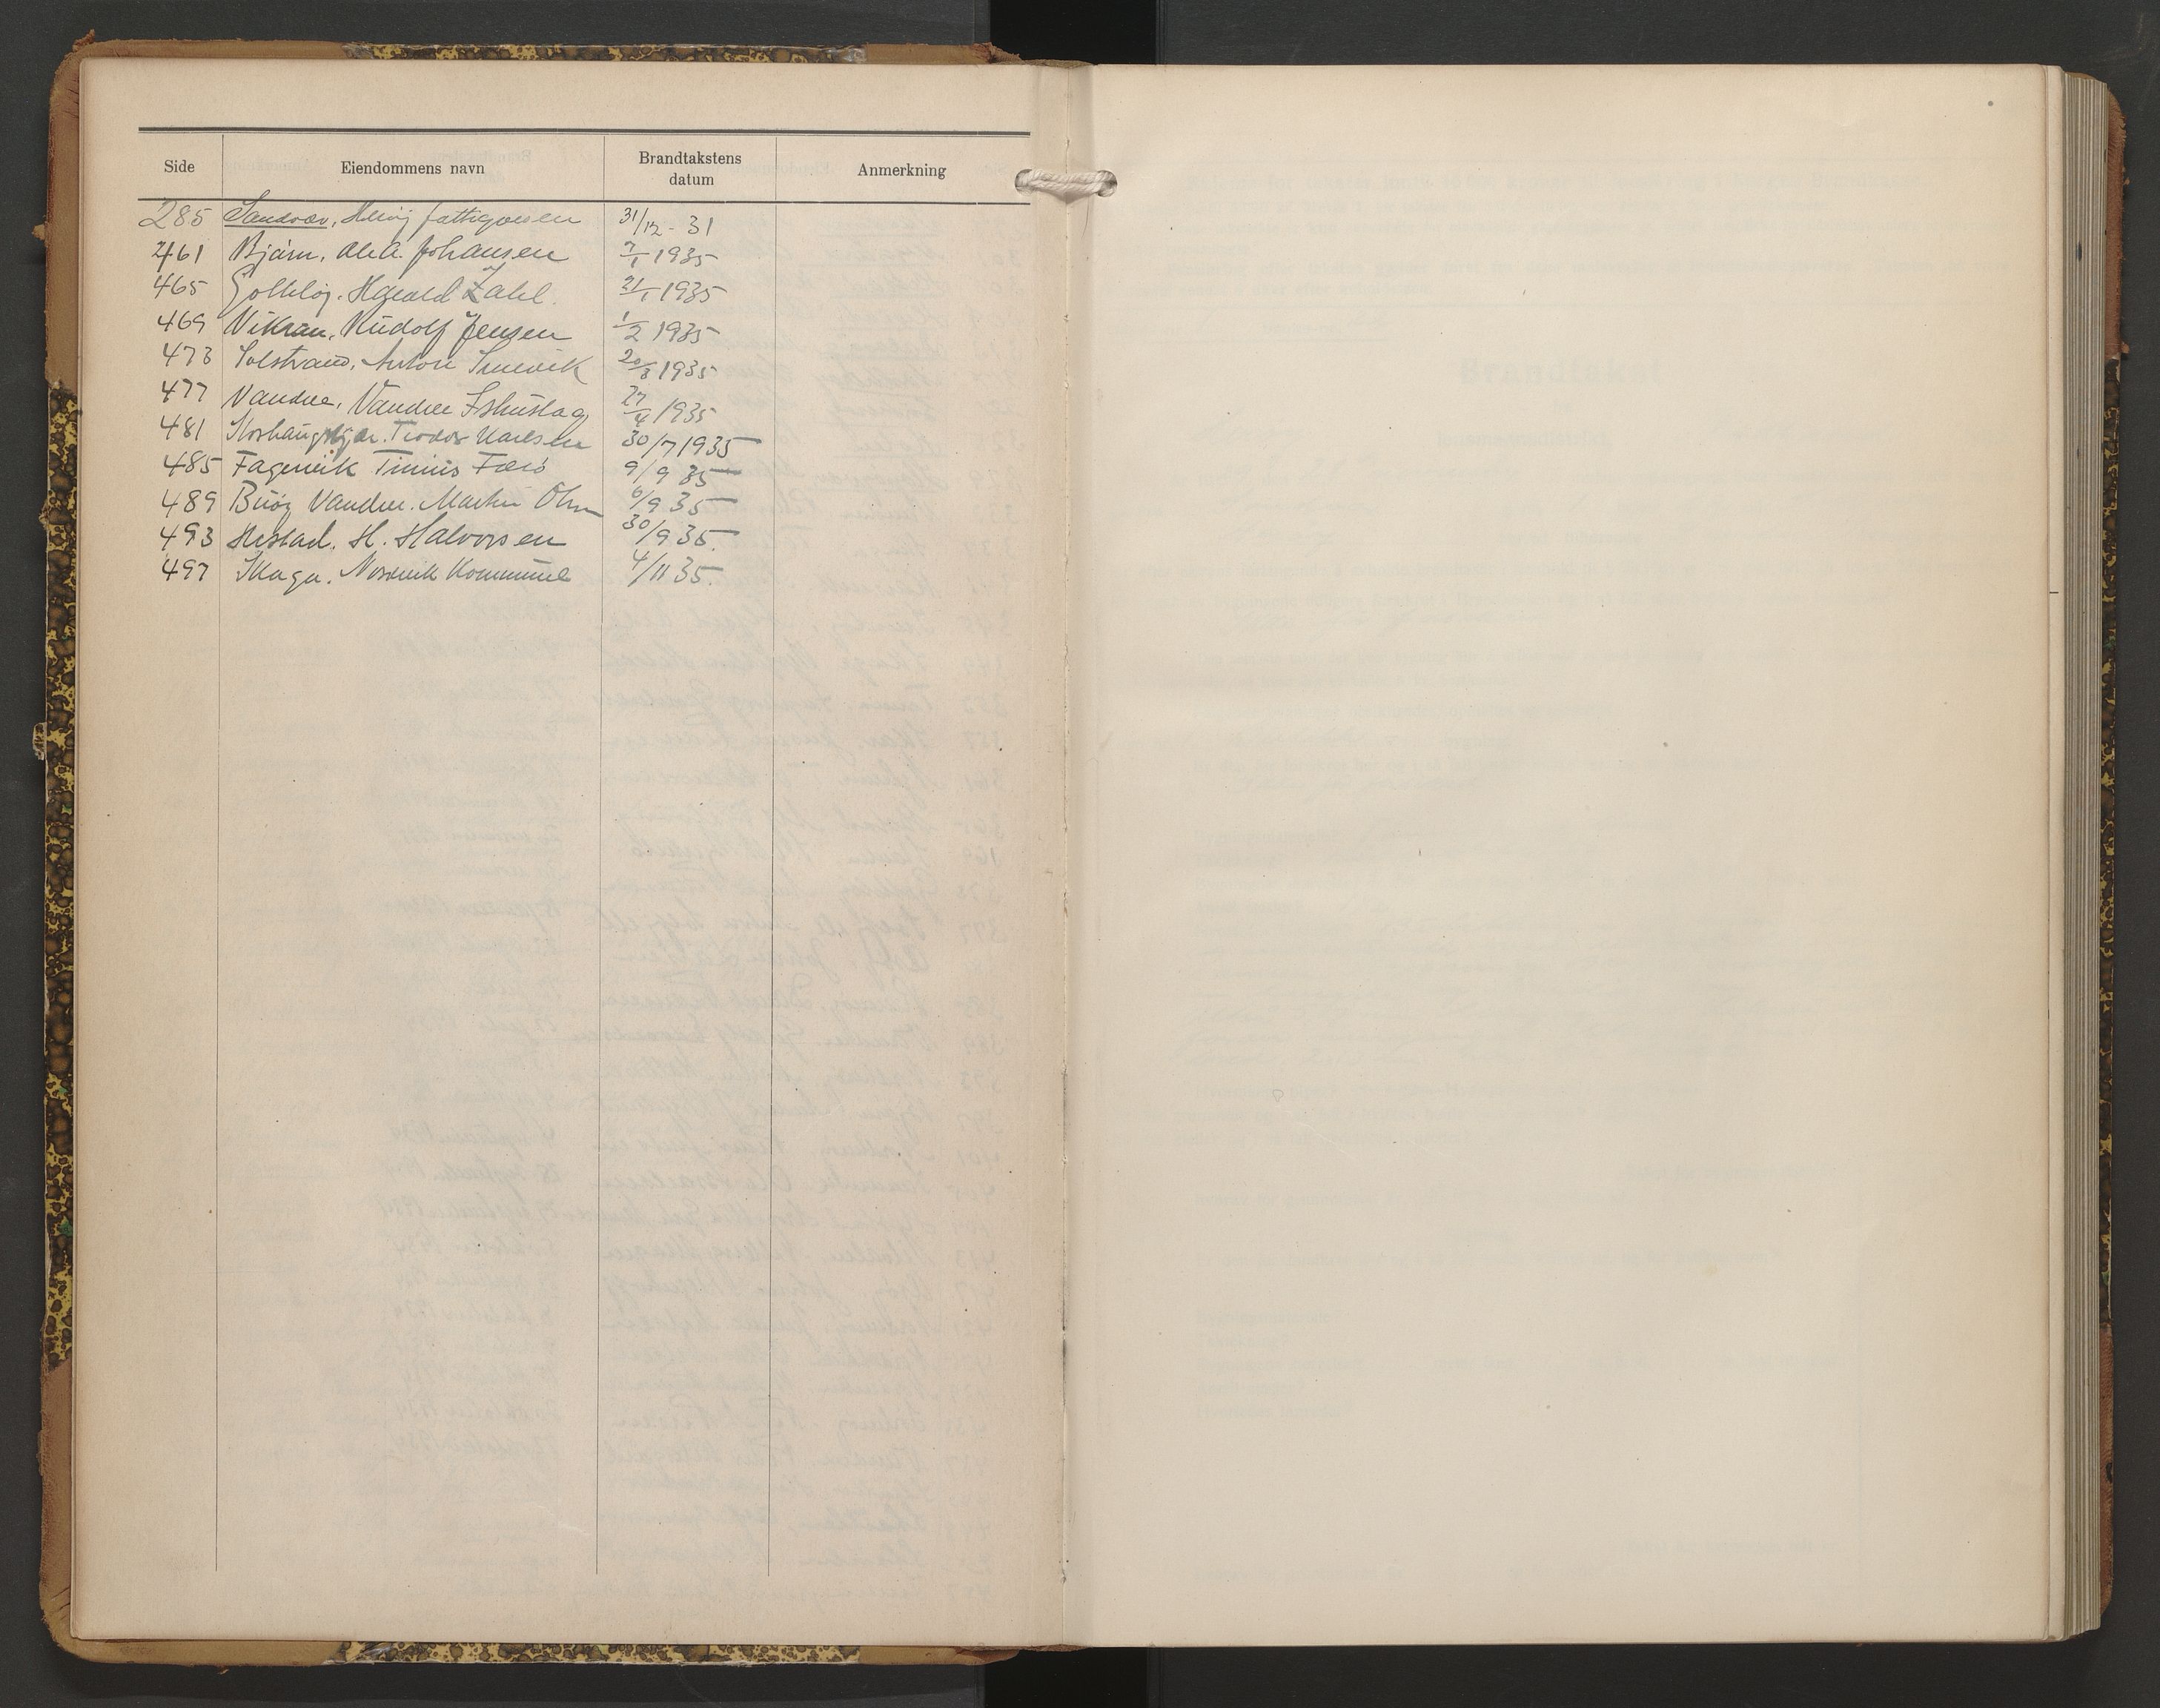 Side Eiendommens navn Brandtakstens datum Anmerkning
285 Sandvær, Herøy fattigvesen 31/12 - 31
461 Bjørn, Ole A. Johansen 7/1 1935
465 Harald Zahl. 21/1 1935
469 Vikran, Rudolf Jensen 1/2 1935
473 Solstrand, Anton 20/3 1935
477 Vandve, Vandve Ishuslag 27/4 1935
481 Teodor Karlsen 30/7 1935
485 Fagervik Tinius Færø 9/9 35
489 Buøy Vandve. Martin Olsen 6/9 35
493 H. Halvorsen 30/9 35.
497 Skaga. Nordvik Kommune 4/11 35.